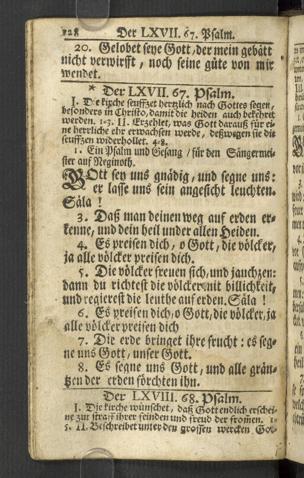 128 Der LXVII. 67. Psalm.
20. Gelobet seye Gott, der mein gebätt
nicht verwirfft, noch seine güte von mir
wendet.
* Der LXVII. 67. Psalm.
I. Die kirche seuffzet hertzlich nach Gottes segen,
besonders in Christo, damit die heiden auch bekehret
werden. 1-3. II. Erzehlet, was Gott darauß für ei-
ne herrliche ehr erwachsen werde, deßwegen sie die
seuffzen widerhollet. 4-8.
1. Ein Psalm und Gesang / für den Sängermei-
ster auf Neginoth.
GOtt sey uns gnädig, und segne uns:
er lasse uns sein angesicht leuchten.
Säla!
3. Daß man deinen weg auf erden er-
kenne, und dein heil under allen Heiden.
4. Es preisen dich, o Gott, die völcker,
ja alle völcker preisen dich.
5. Die völcker freuen sich, und jauchzen:
dann du richtest die völcker mit billichkeit,
und regierest die leuthe auf erden. Säla!
6. Es preisen dich, o Gott, die völcker, ja
alle völcker preisen dich
7. Die erde bringet ihre frucht: es seg-
ne uns Gott, unser Gott.
8. Es segne uns Gott, und alle grän-
tzen der erden förchten ihn.
Der LXVIII. 68. Psalm.
I. Die kirche wünschet, daß Gott endlich erschei-
ne zur straff ihrer feinden und freud der from̃en. 1-
5. II. Beschreibet unter den grossen wercken Got-